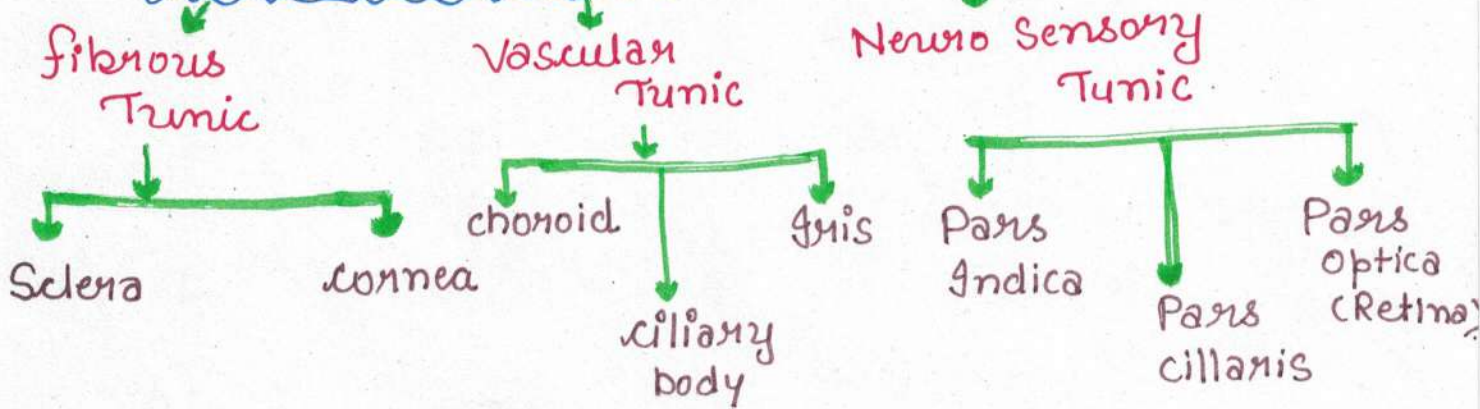 fibrous
Tunic
Vascular
Tunic
Neuro Sensory
Tunic.
Sclera
cornea
choroid
ciliary
body
Iris
Pars
Indica
Pars
cillaris
Pars
Optica
(Retina)